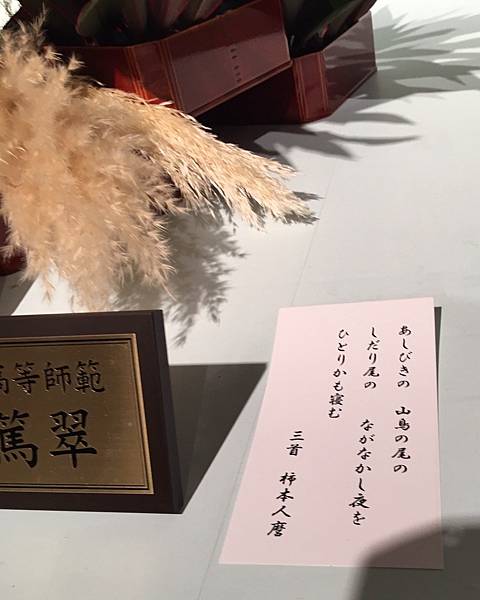 高等師範
篤翠
あしびきの 山鳥の尾の
しだり尾の ながなかし夜を
ひとりかも寝む
三首 柿本人麿